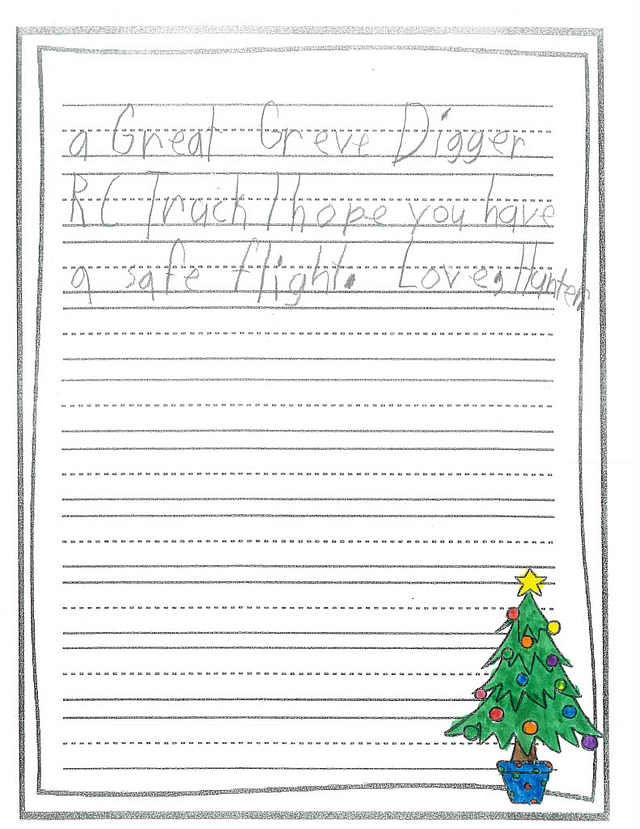 a Great Greve Digger
RC Truck I hope you have
a safe flight. Love, Hunter